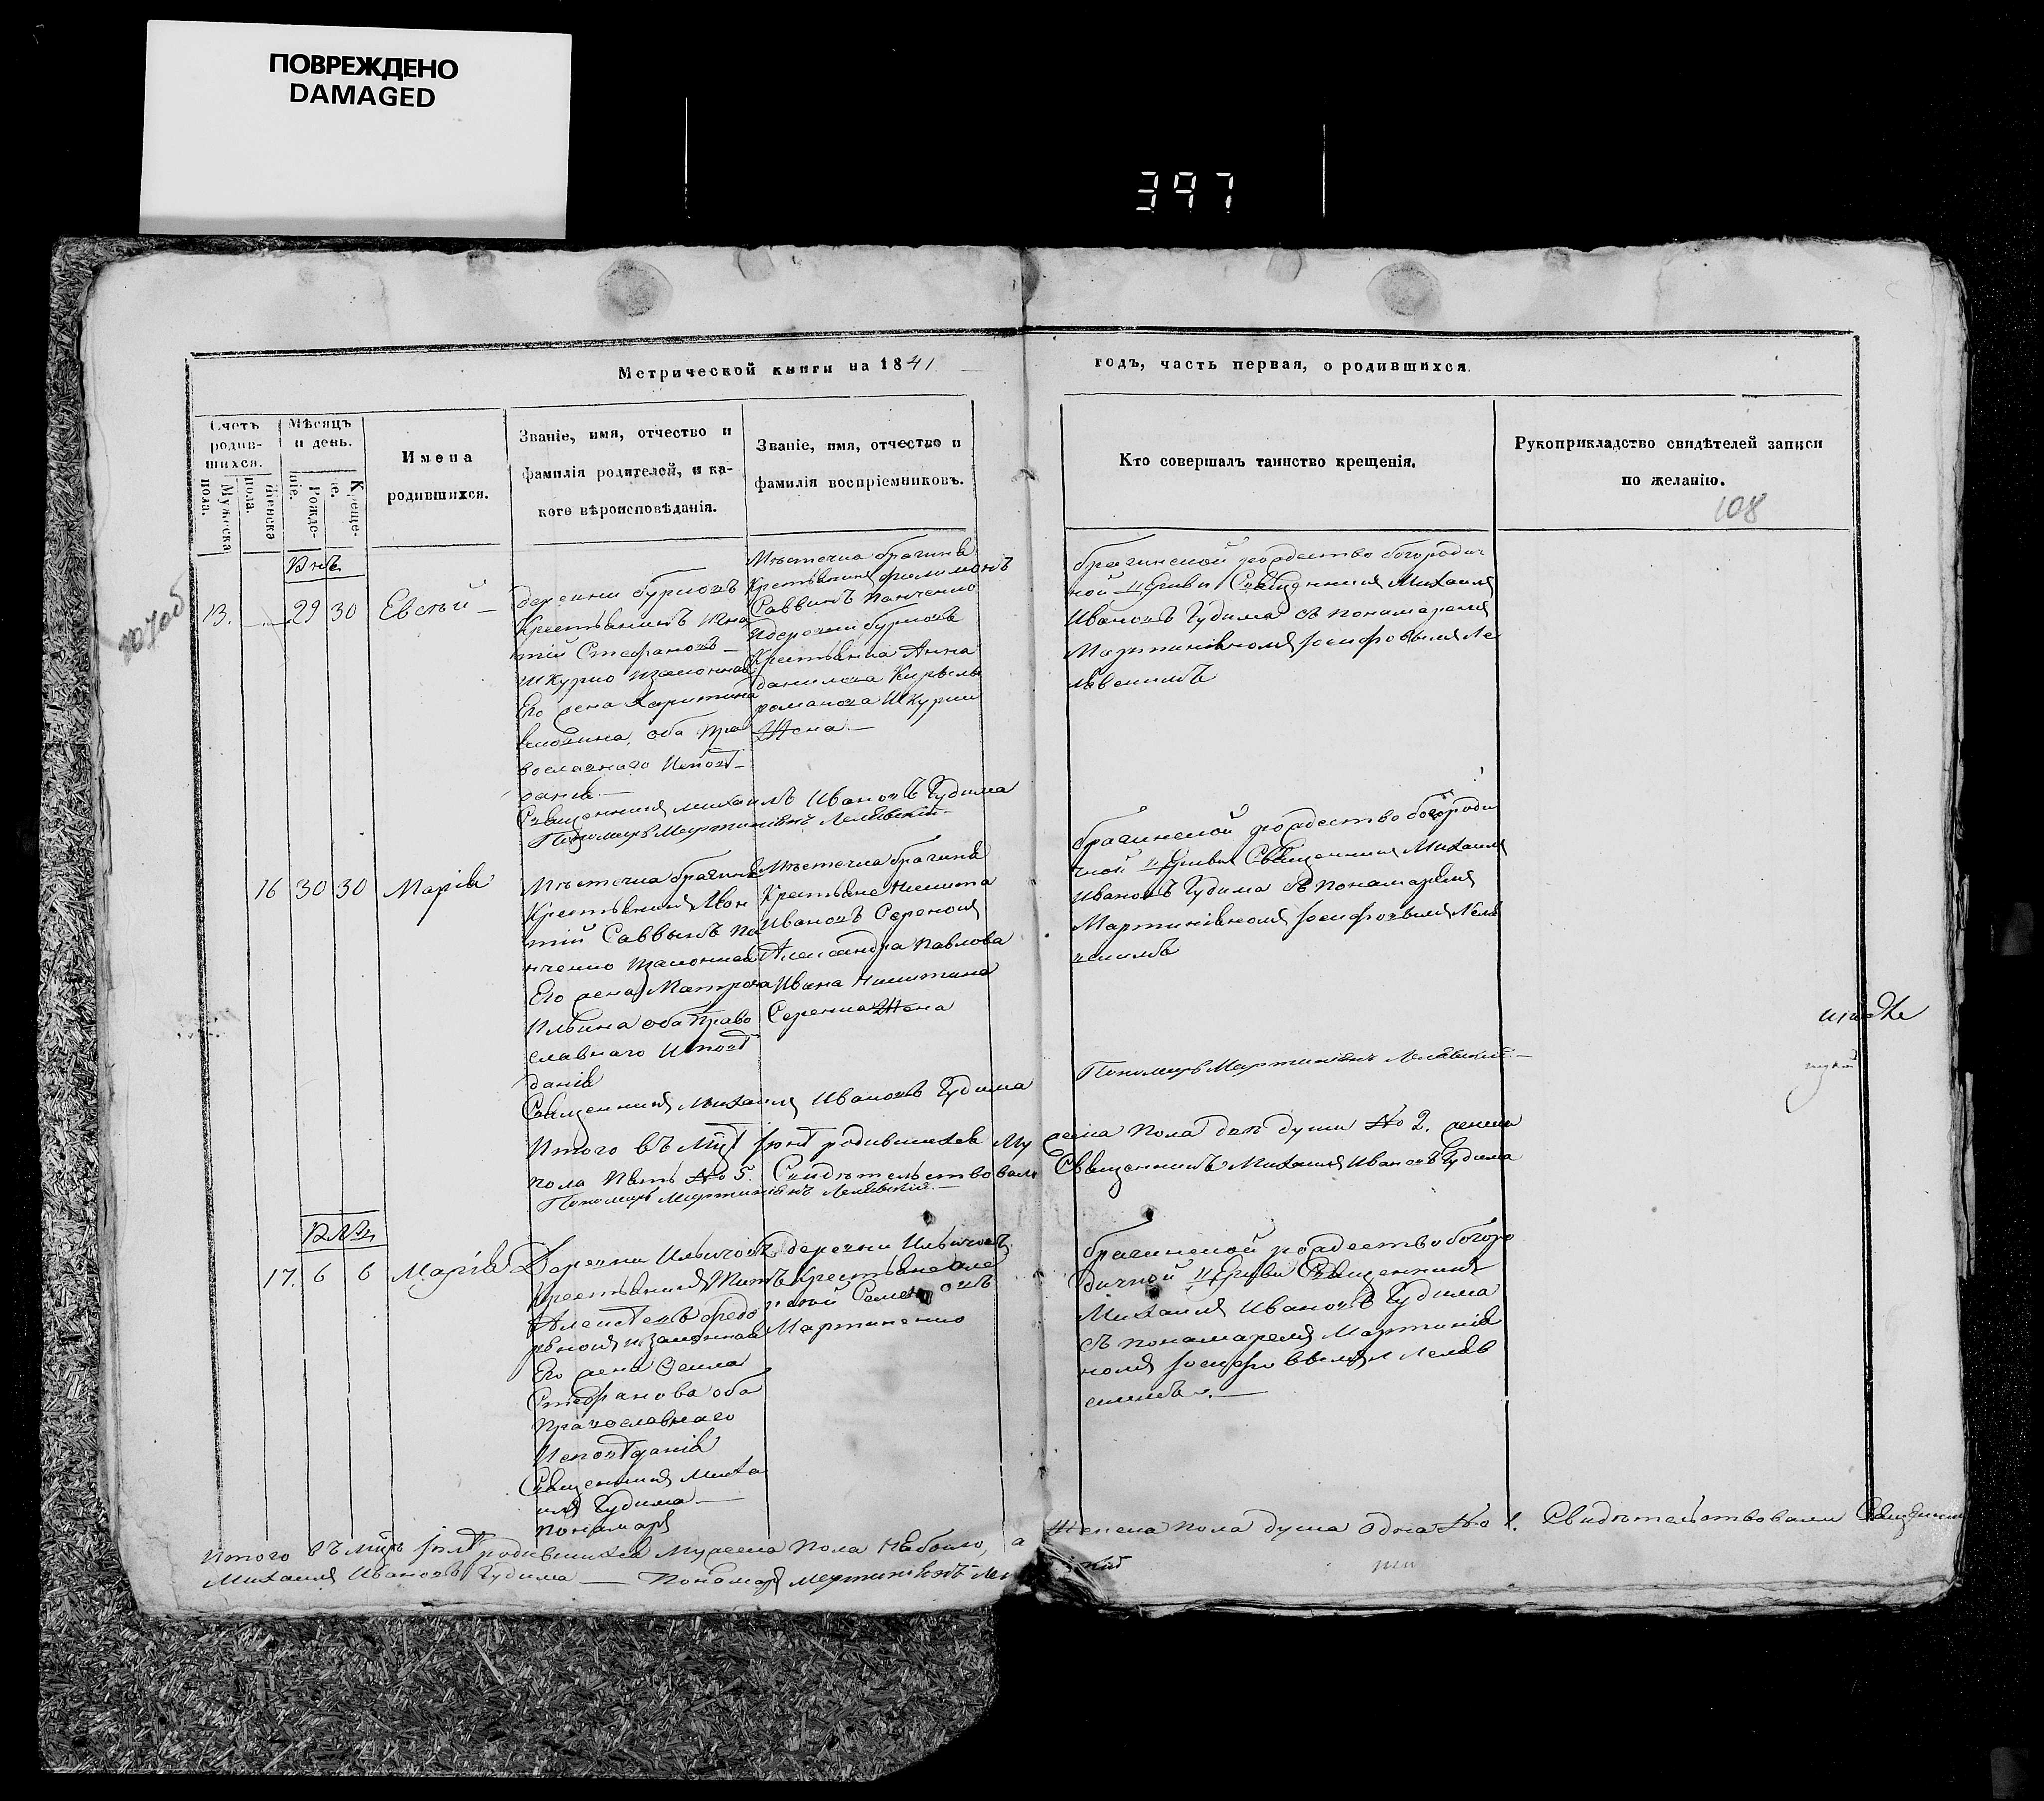 ПОВРЕЖДЕНО
DAMAGED
397
Метрической книги на 1841
годъ, часть первая, о родившихся.
Счетъ родив-
шихся.
Мужеска
пола.
Женска
пола.
Мѣсяцъ
и день.
Рожде-
ніе.
Креще-
ніе.
Имена
родившихся.
Званіе, имя, отчество и
фамилія родителей, и ка-
кого вѣроисповѣданія.
Званіе, имя, отчество и
фамилія воспріемниковъ.
Кто совершалъ таинство крещенія.
Рукоприкладство свидѣтелей записи
по желанію.
108
107об
13. 29 30
деревни бурковъ
Крестьянинъ Игна
тій Стефановъ
Шкурко изаконная
Его жена Харитина
оба пра
вославнаго Исповѣ
данія
Мѣстечка брагина
Крестьянинъ филимонъ
Саввинъ Панченко
идеревни бурковъ
Крестьянка Анна
данилова Кирылы
романова Шкурки
Жена
брагинской рождество богородич
ной Церкви Священникъ Михаилъ
Ивановъ Гудима съ пономаремъ
Мартиніаномъ Іосифовымъ Ле
лявскимъ
Священникъ михаилъ Ивановъ Гудима
Пономарь Мартиніянъ Лелявскій
16 30 30 Марія
Мѣстечка брагина
Крестьянинъ Леон
тій Саввинъ Па
нченко изаконная
Его жена Матрона
Ильина оба Право
славнаго Исповѣ
данія
Мѣстечка брагина
Крестьяне Никита
Ивановъ Серенокъ
Александра Павлова
Ивана Никитина
Серенка Жена
брагинской рождество богороди
чной Церкви Священникъ Михаилъ
Ивановъ Гудима съ пономаремъ
Мартиніяномъ Іосифовымъ Леля
вскимъ
Священникъ Михаилъ Ивановъ Гудима
Пономарь Мартиніянъ Лелявскій
Итого въ родившихся Му жеска пола двѣ души No 2. женска
пола Пять No 5. Свидѣтельствовали Священникъ Михаилъ Ивановъ Гудима
Пономарь Мартиніянъ Лелявскій
17. 6 6 Марія
Деревни Ильичовъ
Алексѣевъ федо
ренокъ изаконная
Его жена Фекла
Стефанова оба
Православнаго
Исповѣданія
деревни Ильичовъ
Крестьяне Але
ксѣй Семеновъ
Мартиненко
брагинской рождество богоро
дичной Церкви Священникъ
Михаилъ Ивановъ Гудима
съ пономаремъ Мартинія
номъ Іосифоввымъ Леляв
скимъ
Священникъ Миха
илъ Гудима
Пономарь
Итого въ родившихся Мужеска Пола Небыло, а Женска пола душа одна No 1. Свидѣтельствовали Священникъ
Михаилъ Ивановъ Гудима Пономарь Мартиніянъ